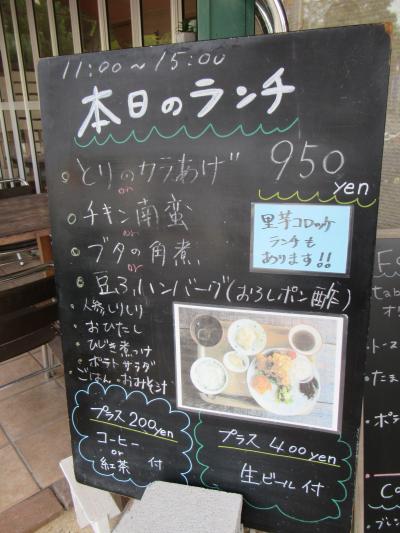 11:00～15:00
本日のランチ
とりのカラあげ 950
or yen
チキン南蛮
or
ブタの角煮
or
豆ふハンバーグ(おろしポン酢)
里芋コロッケ
ランチも
あります!!
人参しりしり
おひたし
ひじき煮つけ
ポテトサラダ
ごはん・おみそ汁
プラス200yen
コーヒー
or
紅茶 付
プラス 400yen
生ビール付